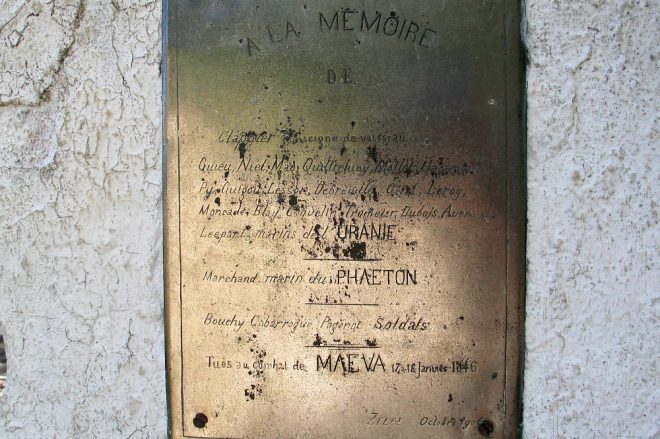 A LA MÉMOIRE
DE
Clappier enseigne de vaisseau
Guiey, Niel, Mao,
Py, Guigou, Lessore, Debreuille, Leroy,
Monrade, Blay, Coquelin, Trameler, Dubois,
Leopard, marins de l'URANIE
Marchand marin du PHAETON
Bouchy Cabarrogue Pageriot Soldats
Tués au combat de MAEVA 17 & 18 Janvier 1846
Octobre